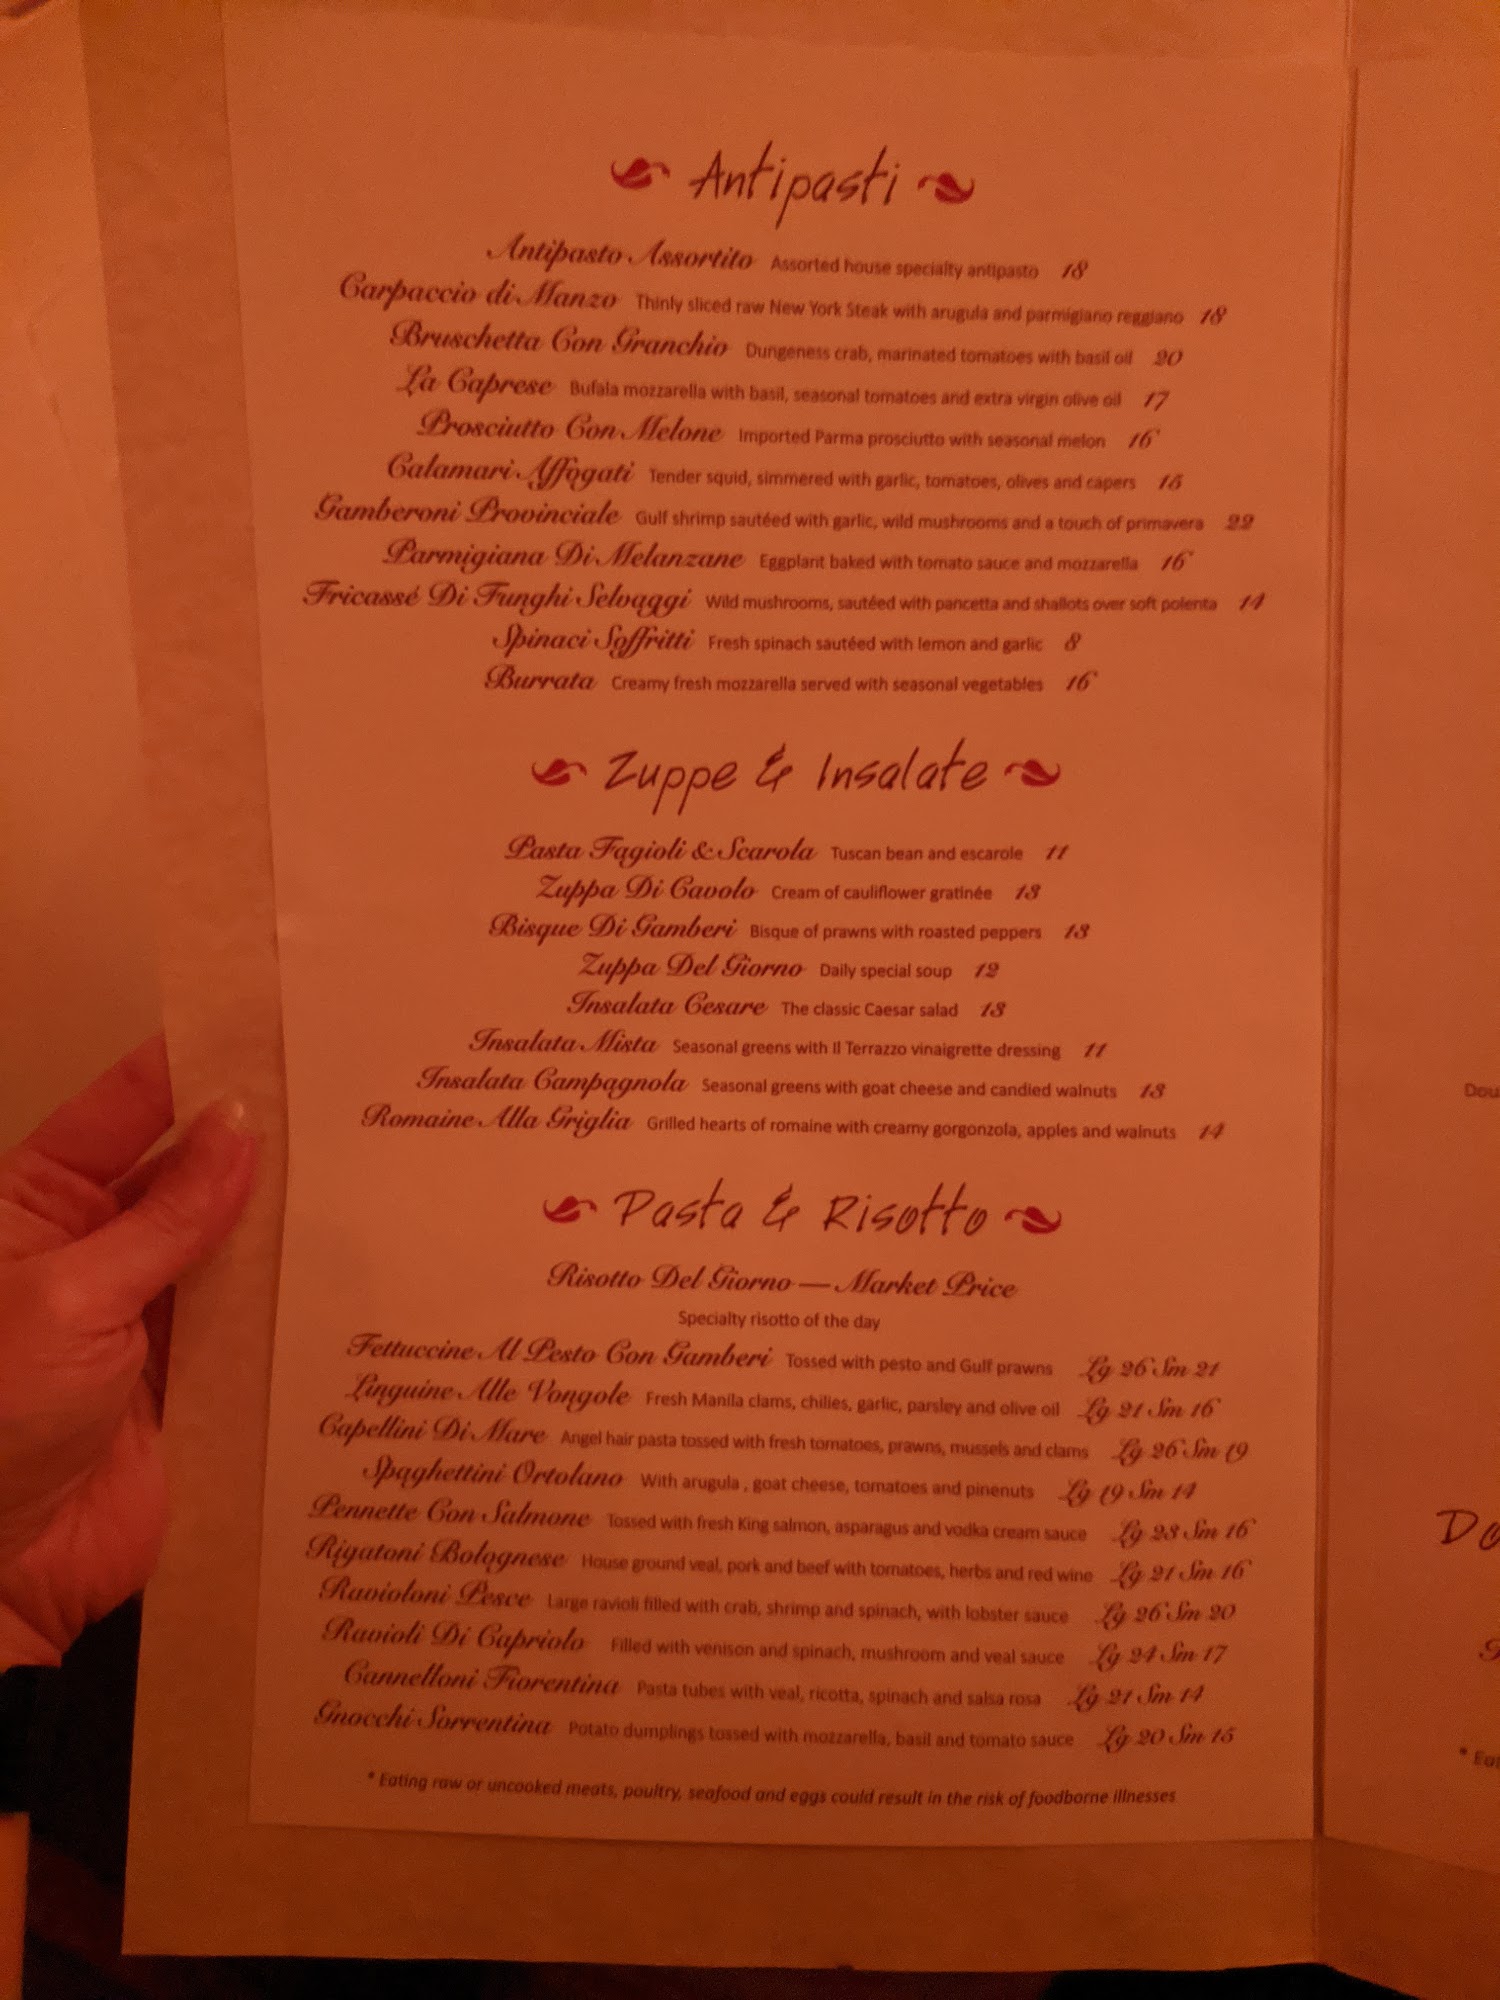 Antipasti
Antipasto Assortito Assorted house specialty antipasto 18
Carpaccio di Manzo Thinly sliced raw New York Steak with arugula and parmigiano reggiano 18
Bruschetta Con Granchio Dungeness crab, marinated tomatoes with basil oil 20
La Caprese Bufala mozzarella with basil, seasonal tomatoes and extra virgin olive oil 17
Prosciutto Con Melone Imported Parma prosciutto with seasonal melon 16
Calamari Affogati Tender squid, simmered with garlic, tomatoes, olives and capers 15
Gamberoni Provinciale Gulf shrimp sautéed with garlic, wild mushrooms and a touch of primavera 22
Parmigiana Di Melanzane Eggplant baked with tomato sauce and mozzarella 16
Fricassé Di Funghi Selvaggi Wild mushrooms, sautéed with pancetta and shallots over soft polenta 14
Spinaci Soffritti Fresh spinach sautéed with lemon and garlic 8
Burrata Creamy fresh mozzarella served with seasonal vegetables 16
Zuppe & Insalate
Pasta Fagioli & Scarola Tuscan bean and escarole 11
Zuppa Di Cavolo Cream of cauliflower gratinée 13
Bisque Di Gamberi Bisque of prawns with roasted peppers 13
Zuppa Del Giorno Daily special soup 12
Insalata Cesare The classic Caesar salad 13
Insalata Mista Seasonal greens with Il Terrazzo vinaigrette dressing 11
Insalata Campagnola Seasonal greens with goat cheese and candied walnuts 13
Romaine Alla Griglia Grilled hearts of romaine with creamy gorgonzola, apples and walnuts 14
Pasta & Risotto
Risotto Del Giorno — Market Price
Specialty risotto of the day
Fettuccine Al Pesto Con Gamberi Tossed with pesto and Gulf prawns Lg 26 Sm 21
Linguine Alle Vongole Fresh Manila clams, chilies, garlic, parsley and olive oil Lg 21 Sm 16
Capellini Di Mare Angel hair pasta tossed with fresh tomatoes, prawns, mussels and clams Lg 26 Sm 19
Spaghettini Ortolano With arugula , goat cheese, tomatoes and pinenuts Lg 19 Sm 14
Pennette Con Salmone Tossed with fresh King salmon, asparagus and vodka cream sauce Lg 23 Sm 16
Rigatoni Bolognese House ground veal, pork and beef with tomatoes, herbs and red wine Lg 21 Sm 16
Ravioloni Pesce Large ravioli filled with crab, shrimp and spinach, with lobster sauce Lg 26 Sm 20
Ravioli Di Capriolo Filled with venison and spinach, mushroom and veal sauce Lg 24 Sm 17
Cannelloni Fiorentina Pasta tubes with veal, ricotta, spinach and salsa rosa Lg 21 Sm 14
Gnocchi Sorrentina Potato dumplings tossed with mozzarella, basil and tomato sauce Lg 20 Sm 15
* Eating raw or uncooked meats, poultry, seafood and eggs could result in the risk of foodborne illnesses